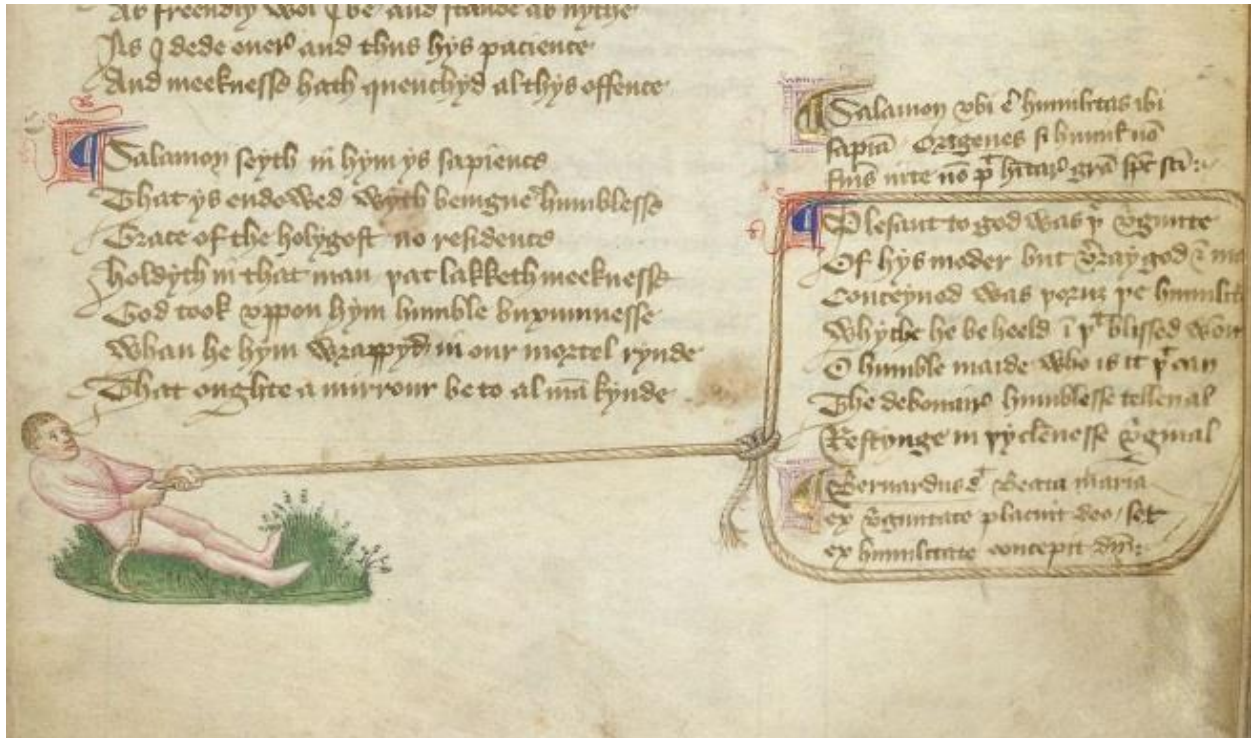 As freendly wol I be and stande as nythe
As I dede euer and thus hys pacience
And meeknesse hath quenchyd al thys offence
Salamon seyth in hym ys sapience
That ys endowed wyth benigne humblesse
Grace of the holygost no residence
holdyth in that man þat lakketh meeknesse
God took vppon hym humble buxumnesse
whan he hym wrappyd in our mortel rynde
That oughte a mirrour be to al mākynde
Salamon vbi ē humilitas ibi
sapiā Origenes si humil nō
fuīs īn te nō hītar grā spc sci
Plesant to god was þᵗ v̄gnite
Of hys moder but v̄ray god ī
Conceyued was þoruȝ þe humilit
whyche he beheeld ī þᵗ blissed wom
O humble maide who is it þᵗ can
The debonair humblesse tellen al
Restynge in þy clēnesse v̄ginal
Bernardus dᵗ Beata maria
ex v̄ginitate placuit deo set
ex humilitate concepit dn̄